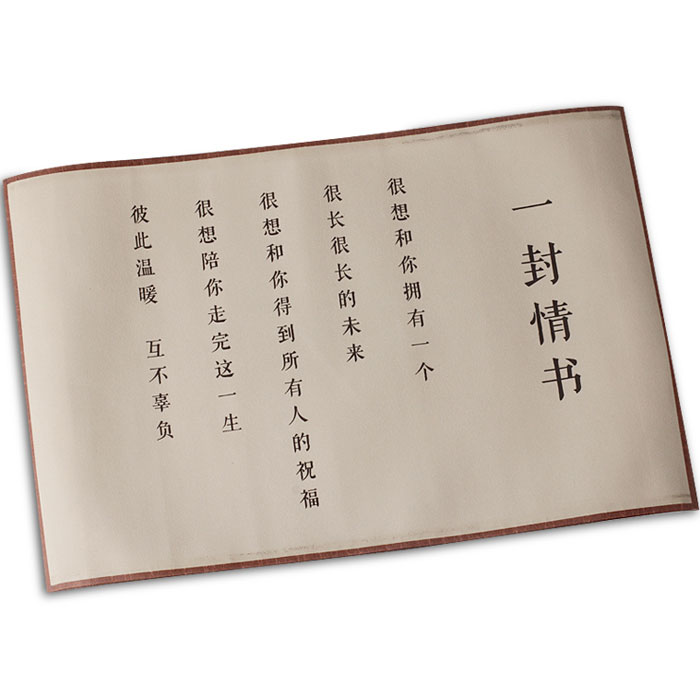 一封情书
很想和你拥有一个
很长很长的未来
很想和你得到所有人的祝福
很想陪你走完这一生
彼此温暖 互不辜负